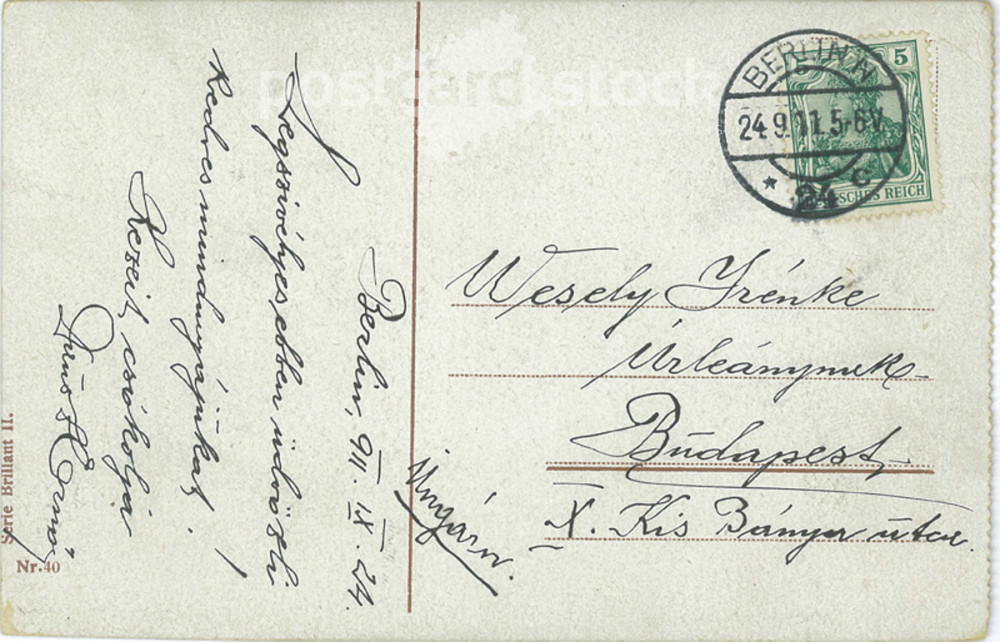 Berlin, 911. IX. 24.
Legszívélyesebben üdvözli
Kedves mindnyájukat!
Kezeit csókolja
BERLIN N
24.9.11.5-6V.
* 24 c
5
DEUTSCHES REICH
Wesely Irénke
Urleánynak
Budapest
X. Kis Bánya utca.
Ungarn.
Serie Brillant II.
Nr. 40
postcard stock